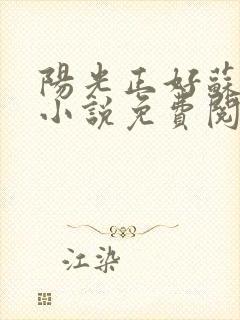 陽光正好蘇
小說免費閱
江染